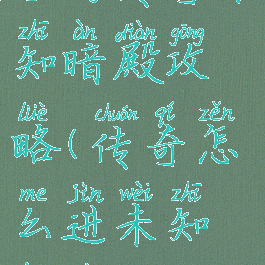 zhī àn diàn gōng
知暗殿攻
lüè chuán qí zěn
略(传奇怎
me jìn wèi zhī
么进未知